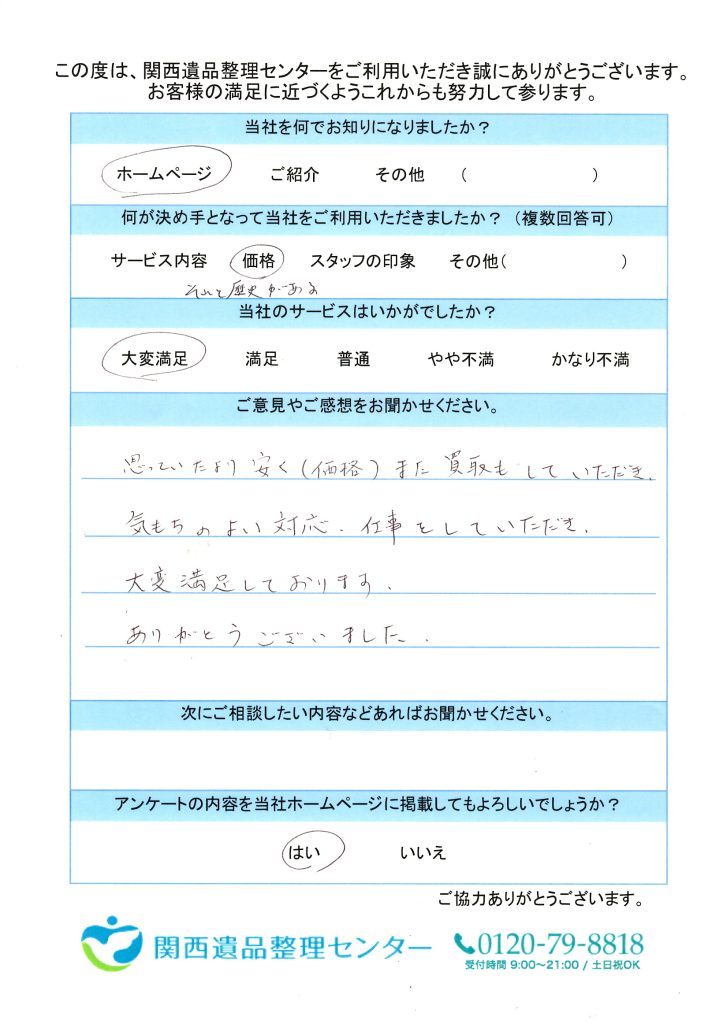 この度は、関西遺品整理センターをご利用いただき誠にありがとうございます。
お客様の満足に近づくようこれからも努力して参ります。
当社を何でお知りになりましたか？
ホームページ ご紹介 その他 （ ）
何が決め手となって当社をご利用いただきましたか？（複数回答可）
サービス内容 価格 スタッフの印象 その他( )
それと歴史がある
当社のサービスはいかがでしたか？
大変満足 満足 普通 やや不満 かなり不満
ご意見やご感想をお聞かせください。
思っていたより安く(価格)また買取もしていただき、
気もちのよい対応、仕事をしていただき、
大変満足しております。
ありがとうございました。
次にご相談したい内容などあればお聞かせください。
アンケートの内容を当社ホームページに掲載してもよろしいでしょうか？
はい いいえ
ご協力ありがとうございます。
関西遺品整理センター 0120-79-8818
受付時間 9:00～21:00 / 土日祝OK